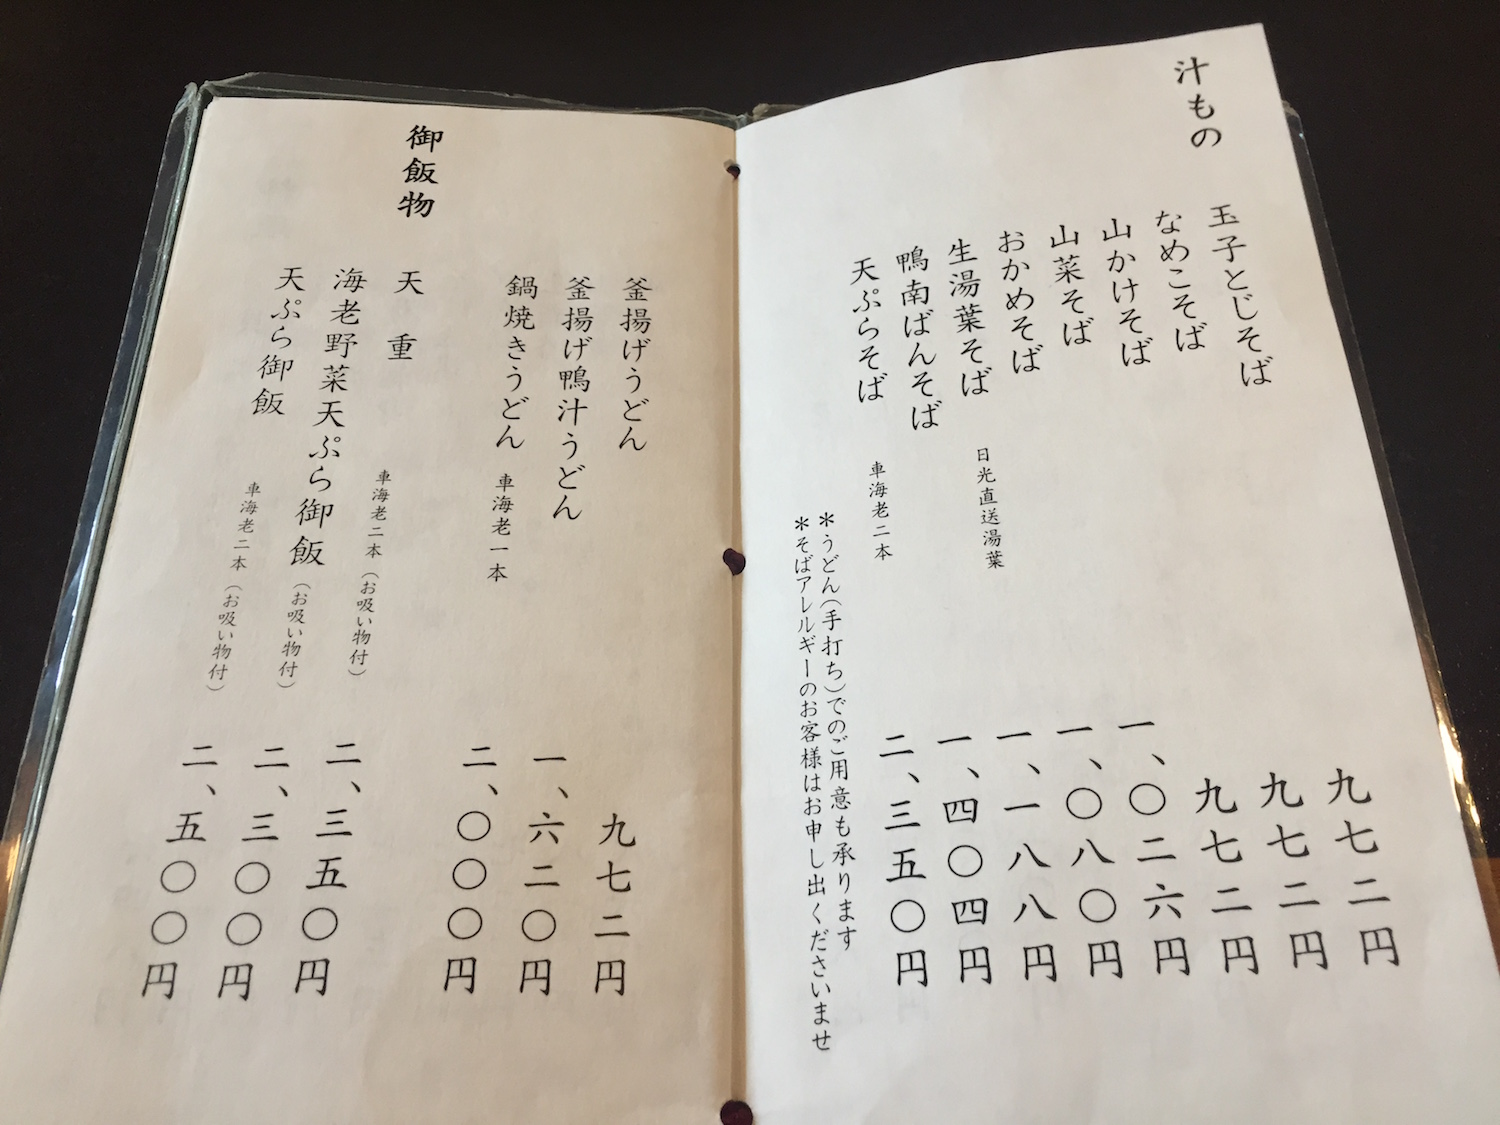 汁もの
玉子とじそば 九七二円
なめこそば 九七二円
山かけそば 九七二円
山菜そば 一、〇二六円
おかめそば 一、〇八〇円
生湯葉そば 日光直送湯葉 一、一八八円
鴨南ばんそば 一、四〇四円
天ぷらそば 車海老二本 二、三五〇円
＊うどん(手打ち)でのご用意も承ります
＊そばアレルギーのお客様はお申し出くださいませ
釜揚げうどん 九七二円
釜揚げ鴨汁うどん 一、六二〇円
鍋焼きうどん 車海老一本 二、〇〇〇円
御飯物
天重 車海老二本(お吸い物付) 二、三五〇円
海老野菜天ぷら御飯(お吸い物付) 二、三〇〇円
天ぷら御飯 車海老二本(お吸い物付) 二、五〇〇円